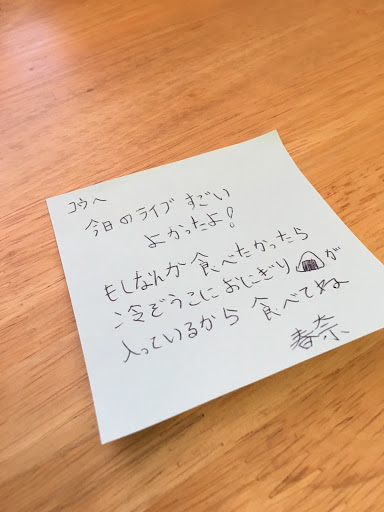 コウへ
今日のライブすごい
よかったよ!
もしなんか食べたかったら
冷ぞうこにおにぎり🍙が
入っているから食べてね
春奈